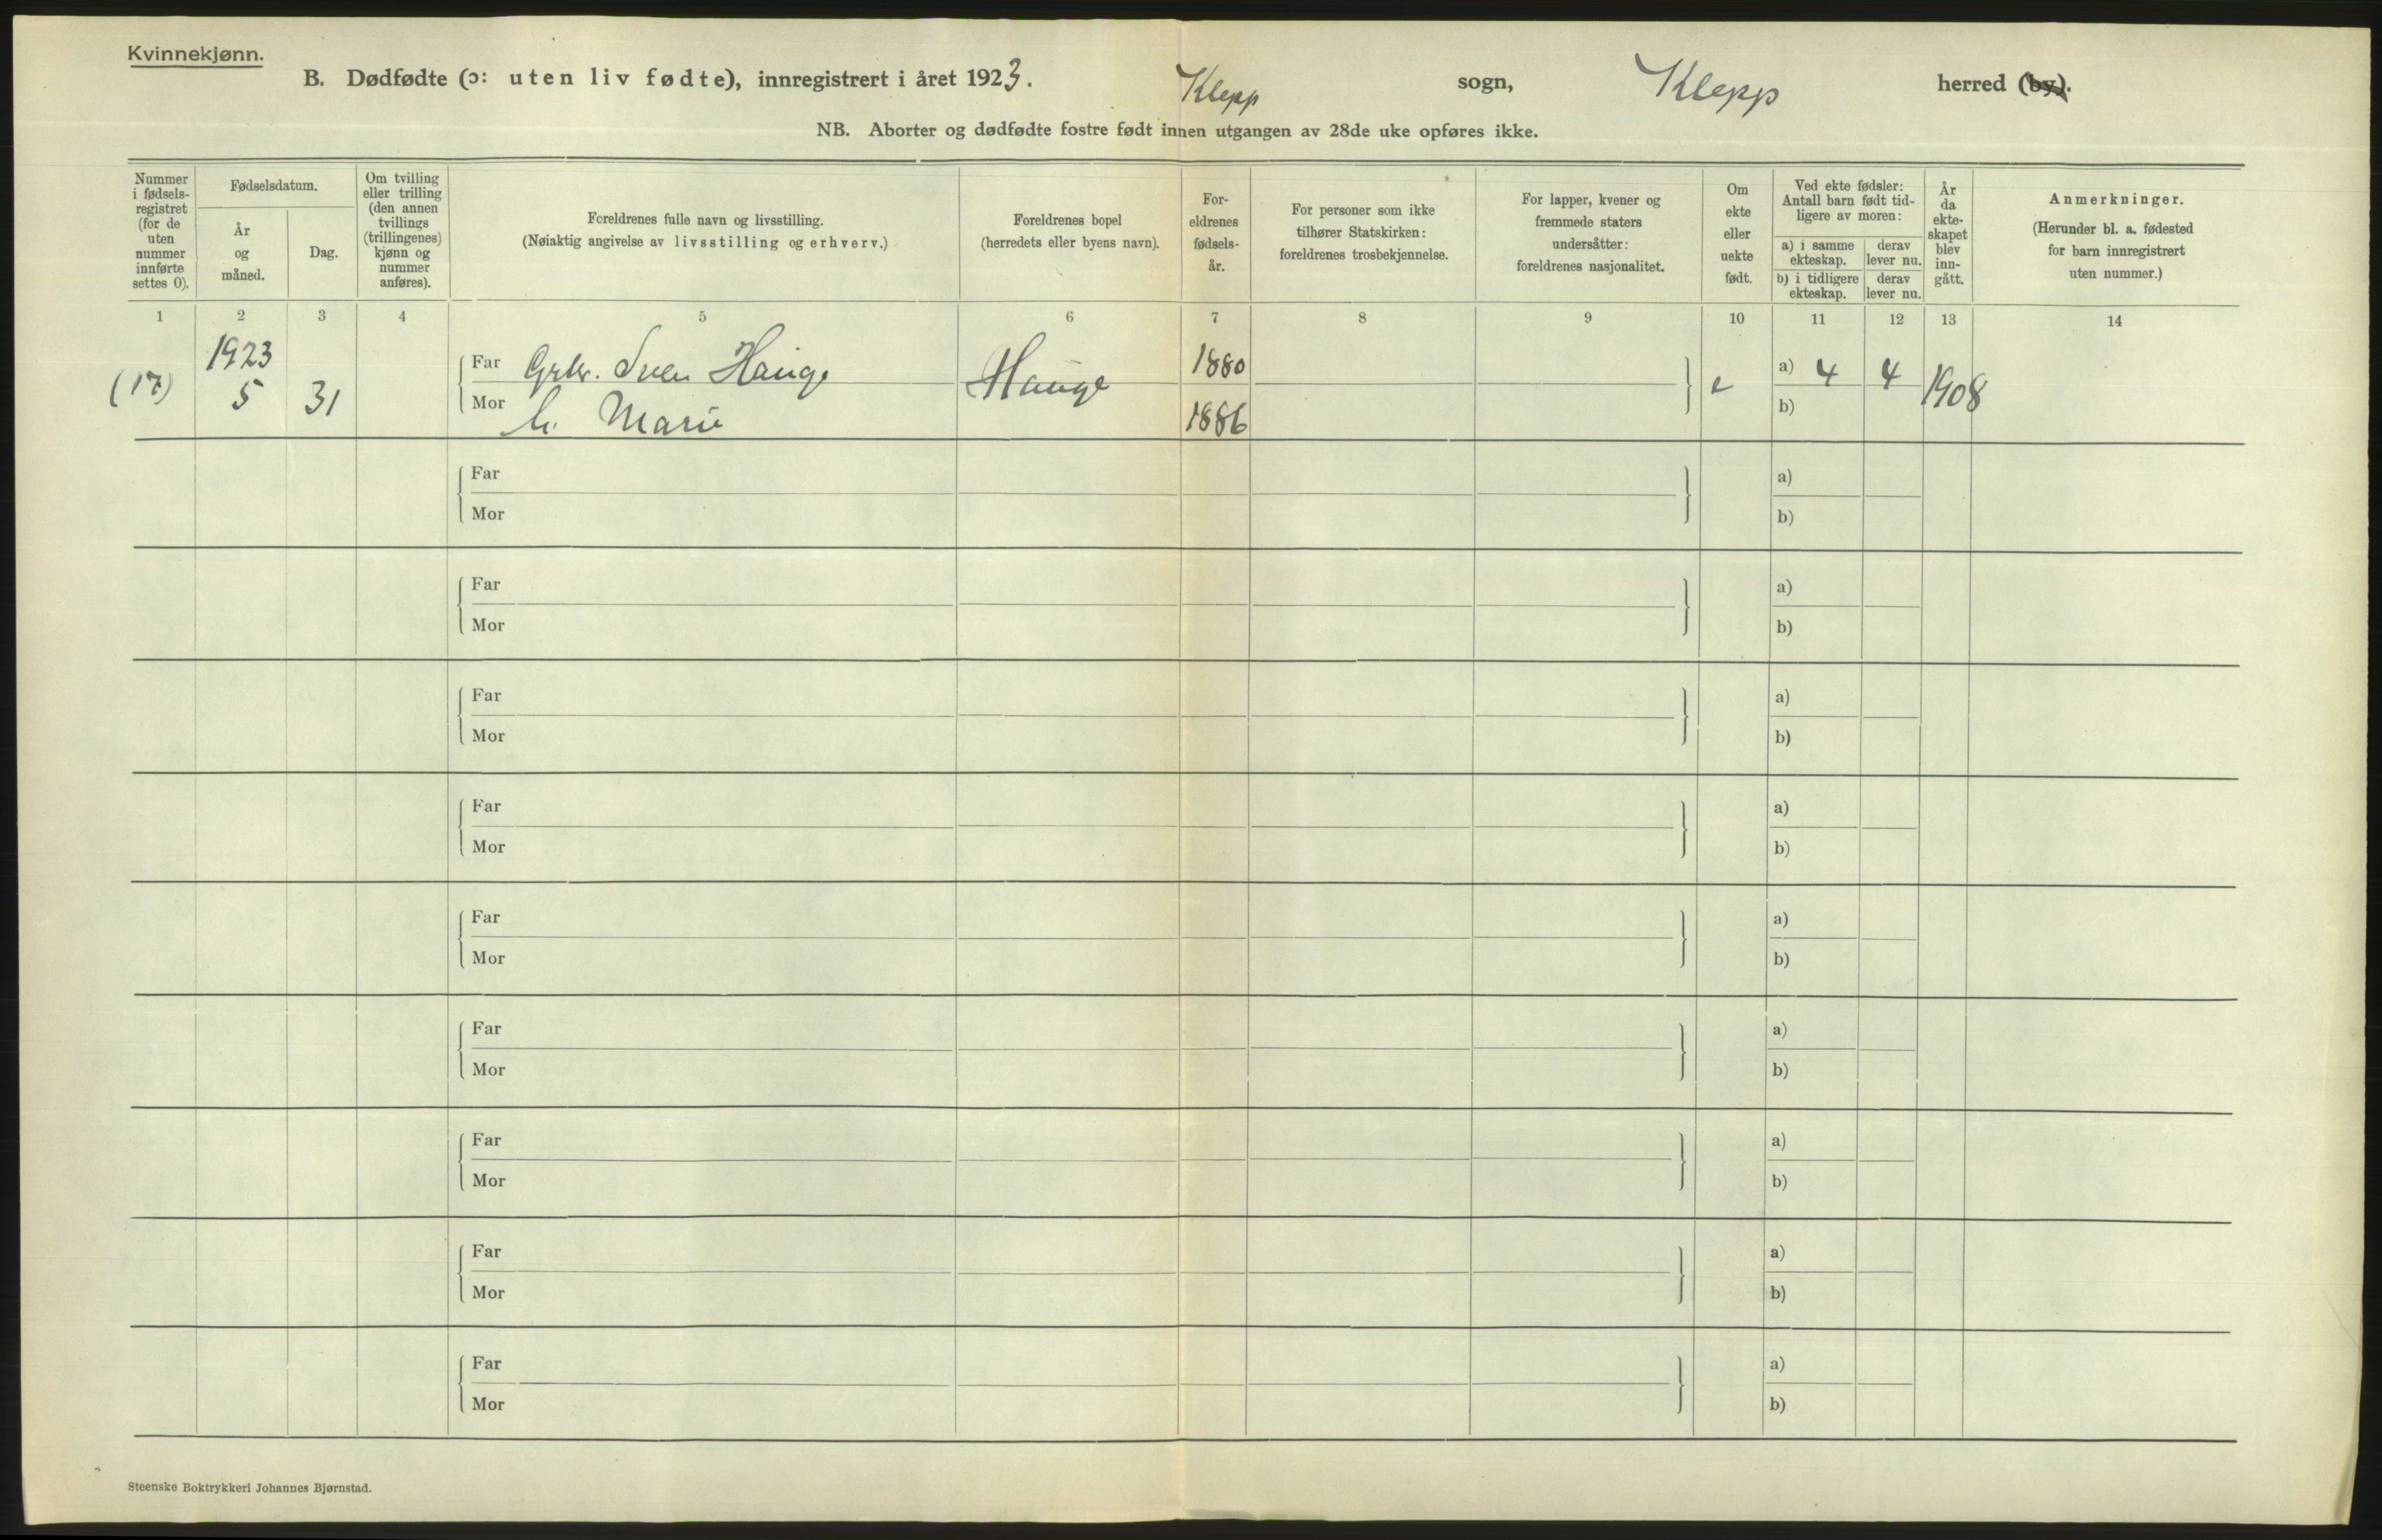 Kvinnekjønn.
B. Dødfødte (ɔ: uten liv fødte), innregistrert i året 1923. Klepp sogn, Klepp herred (by).
NB. Aborter og dødfødte fostre født innen utgangen av 28de uke opføres ikke.
Nummer
i fødsels-
registret
(for de
uten
nummer
innførte
settes 0).
Fødselsdatum.
År
og
måned.
Dag.
Om tvilling
eller trilling
(den annen
tvillings
(trillingenes)
kjønn og
nummer
anføres).
Foreldrenes fulle navn og livsstilling.
(Nøiaktig angivelse av livsstilling og erhverv.)
Foreldrenes bopel
(herredets eller byens navn).
For-
eldrenes
fødsels-
år.
For personer som ikke
tilhører Statskirken:
foreldrenes trosbekjennelse.
For lapper, kvener og
fremmede staters
undersåtter:
foreldrenes nasjonalitet.
Om
ekte
eller
uekte
født.
Ved ekte fødsler:
Antall barn født tid-
ligere av moren:
a) i samme
ekteskap.
derav
lever nu.
b) i tidligere
ekteskap.
derav
lever nu.
År
da
ekte-
skapet
blev
inn-
gått.
Anmerkninger.
(Herunder bl. a. fødested
for barn innregistrert
uten nummer.)
1 2 3 4 5 6 7 8 9 10 11 12 13 14
1923
Far Grbr. Sven Hauge 1880 a) 4 4
(17) 5 31 Hauge e 1908
Mor b)
h. Marie 1886
Far a)
Mor b)
Far a)
Mor b)
Far a)
Mor b)
Far a)
Mor b)
Far a)
Mor b)
Far a)
Mor b)
Far a)
Mor b)
Far a)
Mor b)
Far a)
Mor b)
Steenske Boktrykkeri Johannes Bjørnstad.